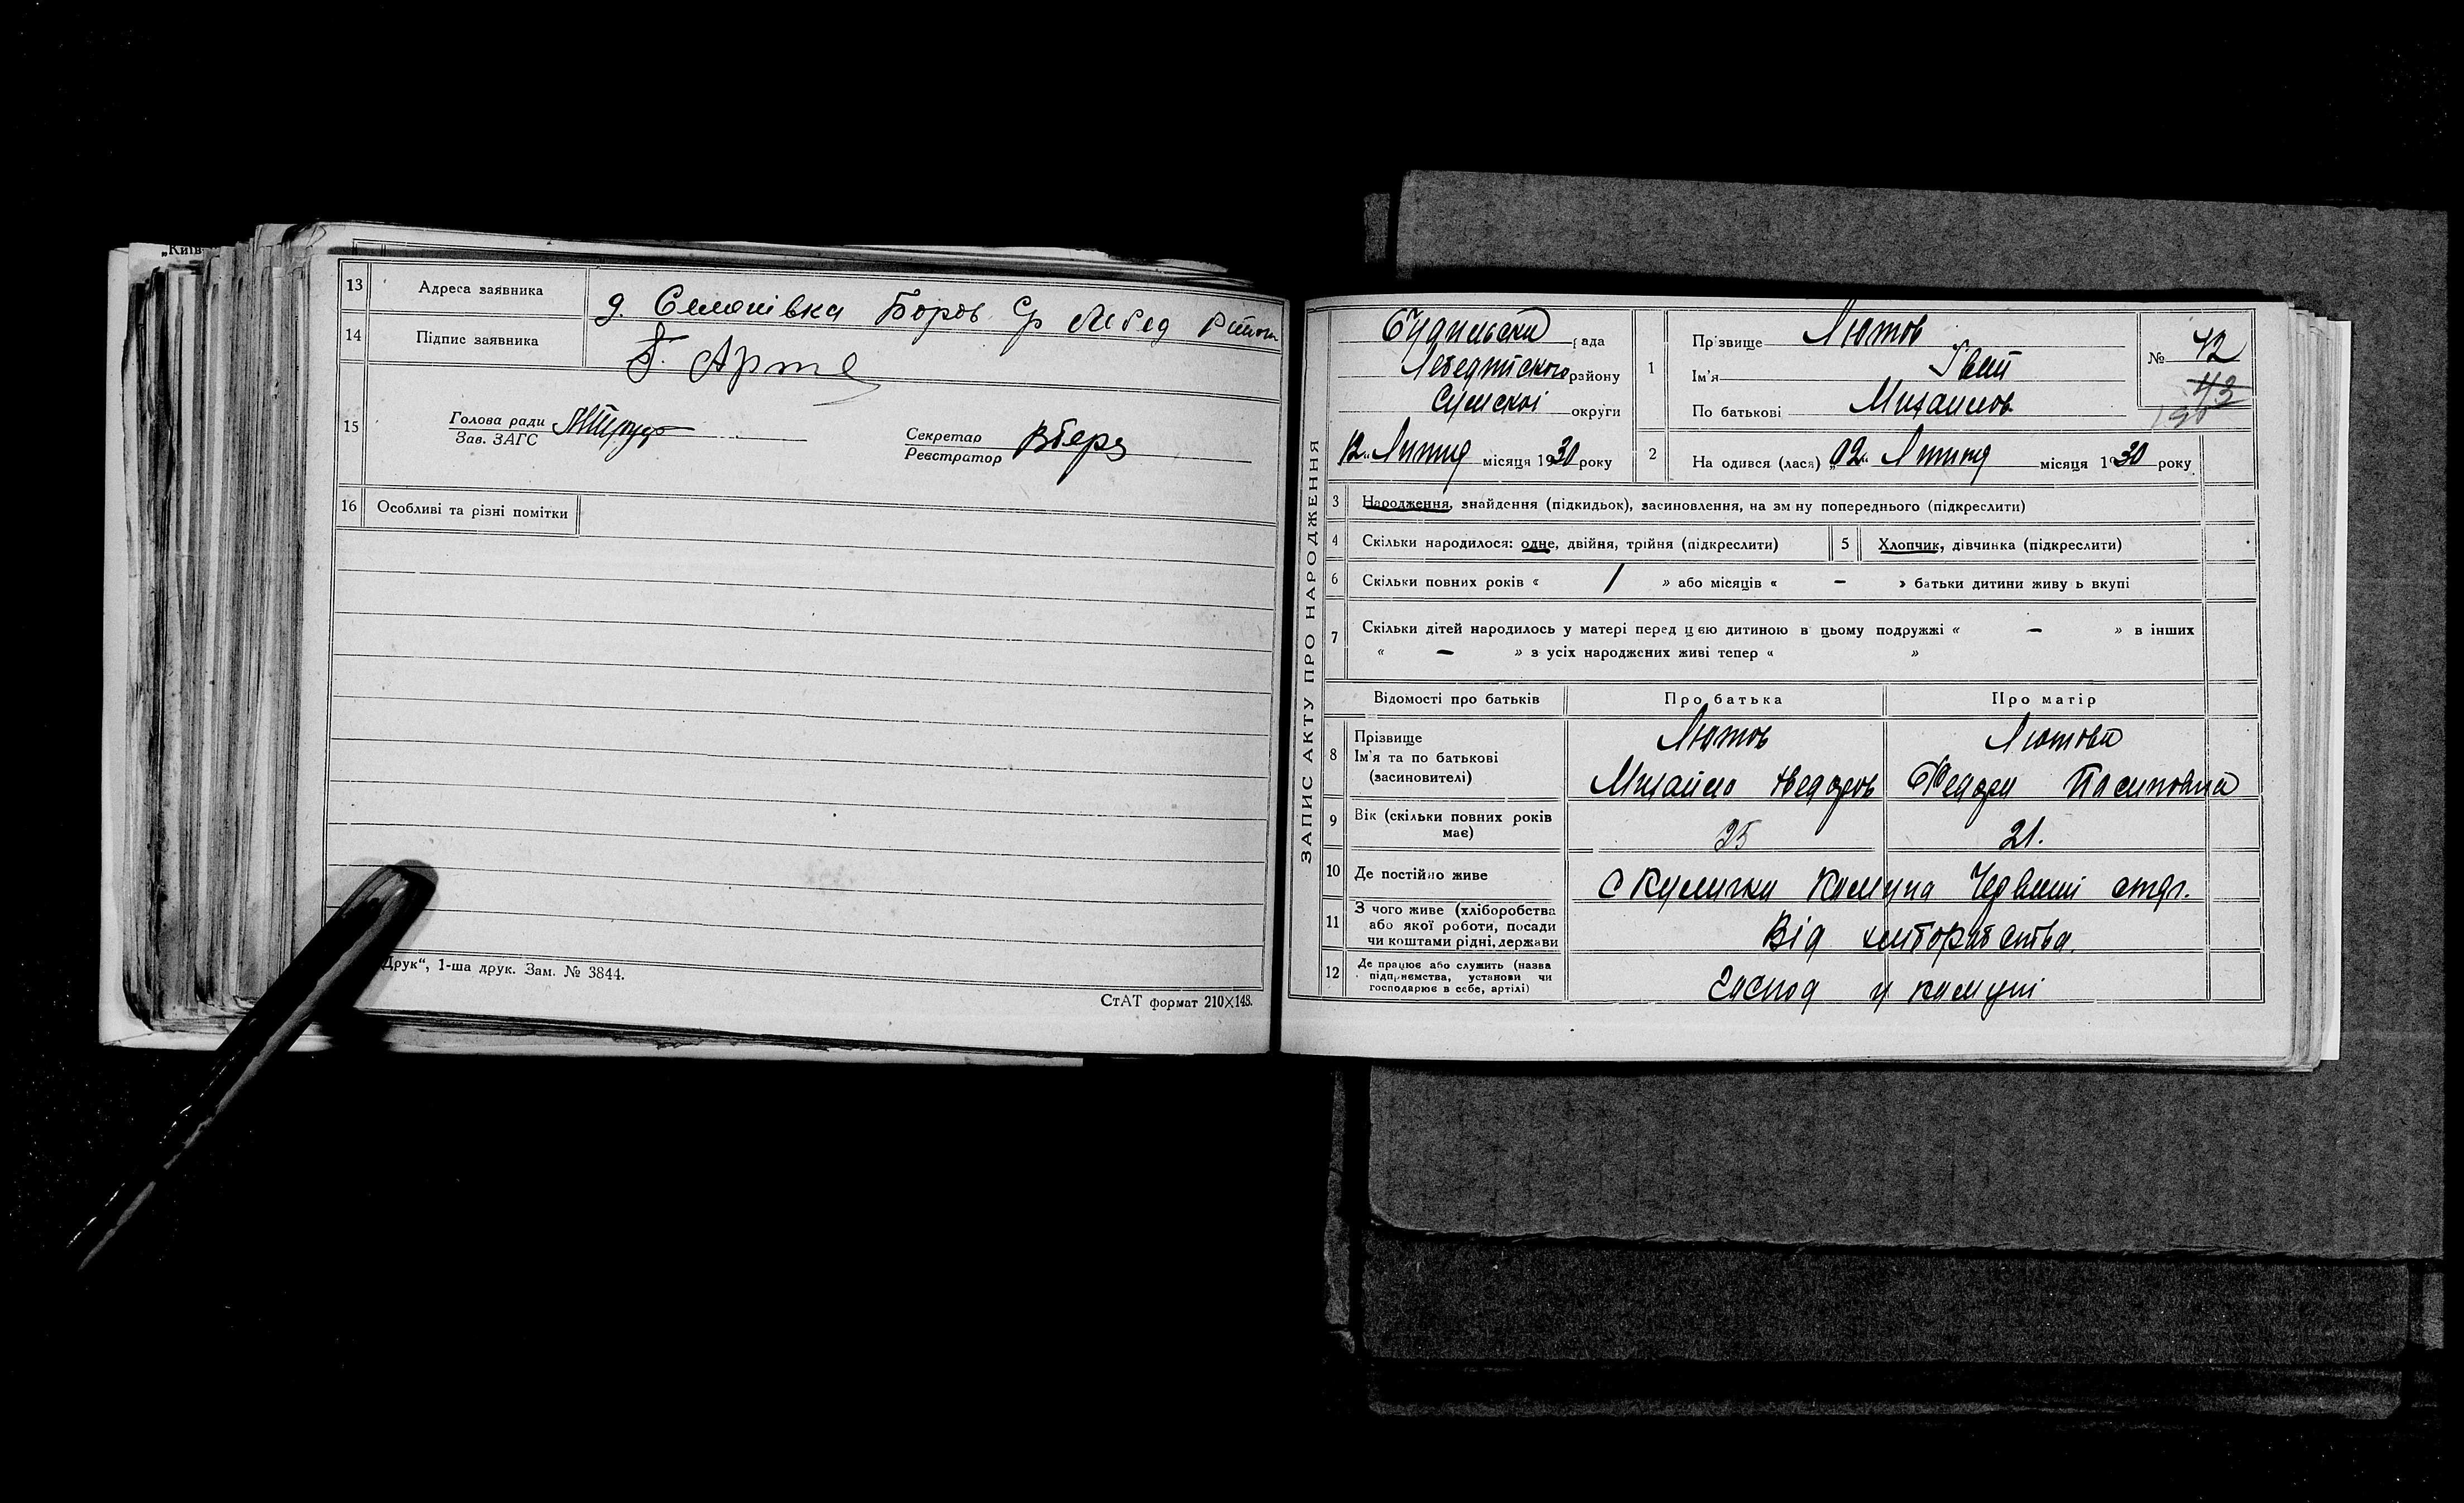 „Київ-
13 Адреса заявника д. Семенівка Боров Ср Лебед Району
14 Підпис заявника Арте
15 Голова ради
Зав. ЗАГС
Секретар
Реєстратор
16 Особливі та різні помітки
Друк“, 1-ша друк. Зам. № 3844.
СтАТ формат 210×148.
ЗАПИС АКТУ ПРО НАРОДЖЕННЯ
Будильська рада
Лебединского району
Сумскої округи
12 „ Липня місяця 1930 року
1 Прізвище Лютов
Ім'я Іван
По батькові Михайлов
№ 42
43
2 На одився (лася) „02“ Липня місяця 1930 року
3 Народження, знайдення (підкидьок), засиновлення, на зм ну попереднього (підкреслити)
4 Скільки народилося: одне, двійня, трійня (підкреслити) 5 Хлопчик, дівчинка (підкреслити)
6 Скільки повних років « / » або місяців « – » батьки дитини живу ь вкупі
7 Скільки дітей народилось у матері перед цею дитиною в цьому подружжі « – » в інших
« – » з усіх народжених живі тепер « »
Відомості про батьків Про батька Про матір
8 Прізвище Лютов Лютова
Ім'я та по батькові Михайло Федоров Федора
(засиновителі)
9 Вік (скільки повних років має) 25 21.
10 Де постійно живе с Кулички Комуна Червоний
11 З чого живе (хліборобства
або якої роботи, посади Від хліборобства.
чи коштами рідні, держави
12 Де працює або служить (назва
підприємства, установи чи Господ у комуні
господарює в себе, артілі)